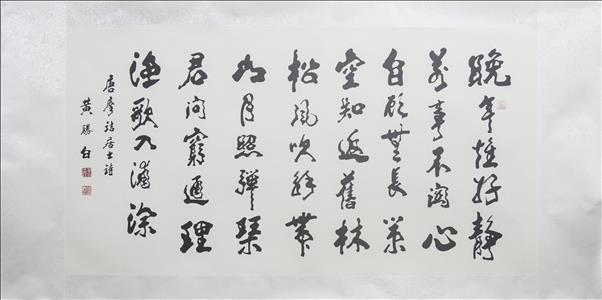 晚年惟好靜
萬事不關心
自顧無長策
空知返舊林
松風吹解帶
山月照彈琴
君問窮通理
漁歌入浦深
唐摩詰居士詩
黃勝白